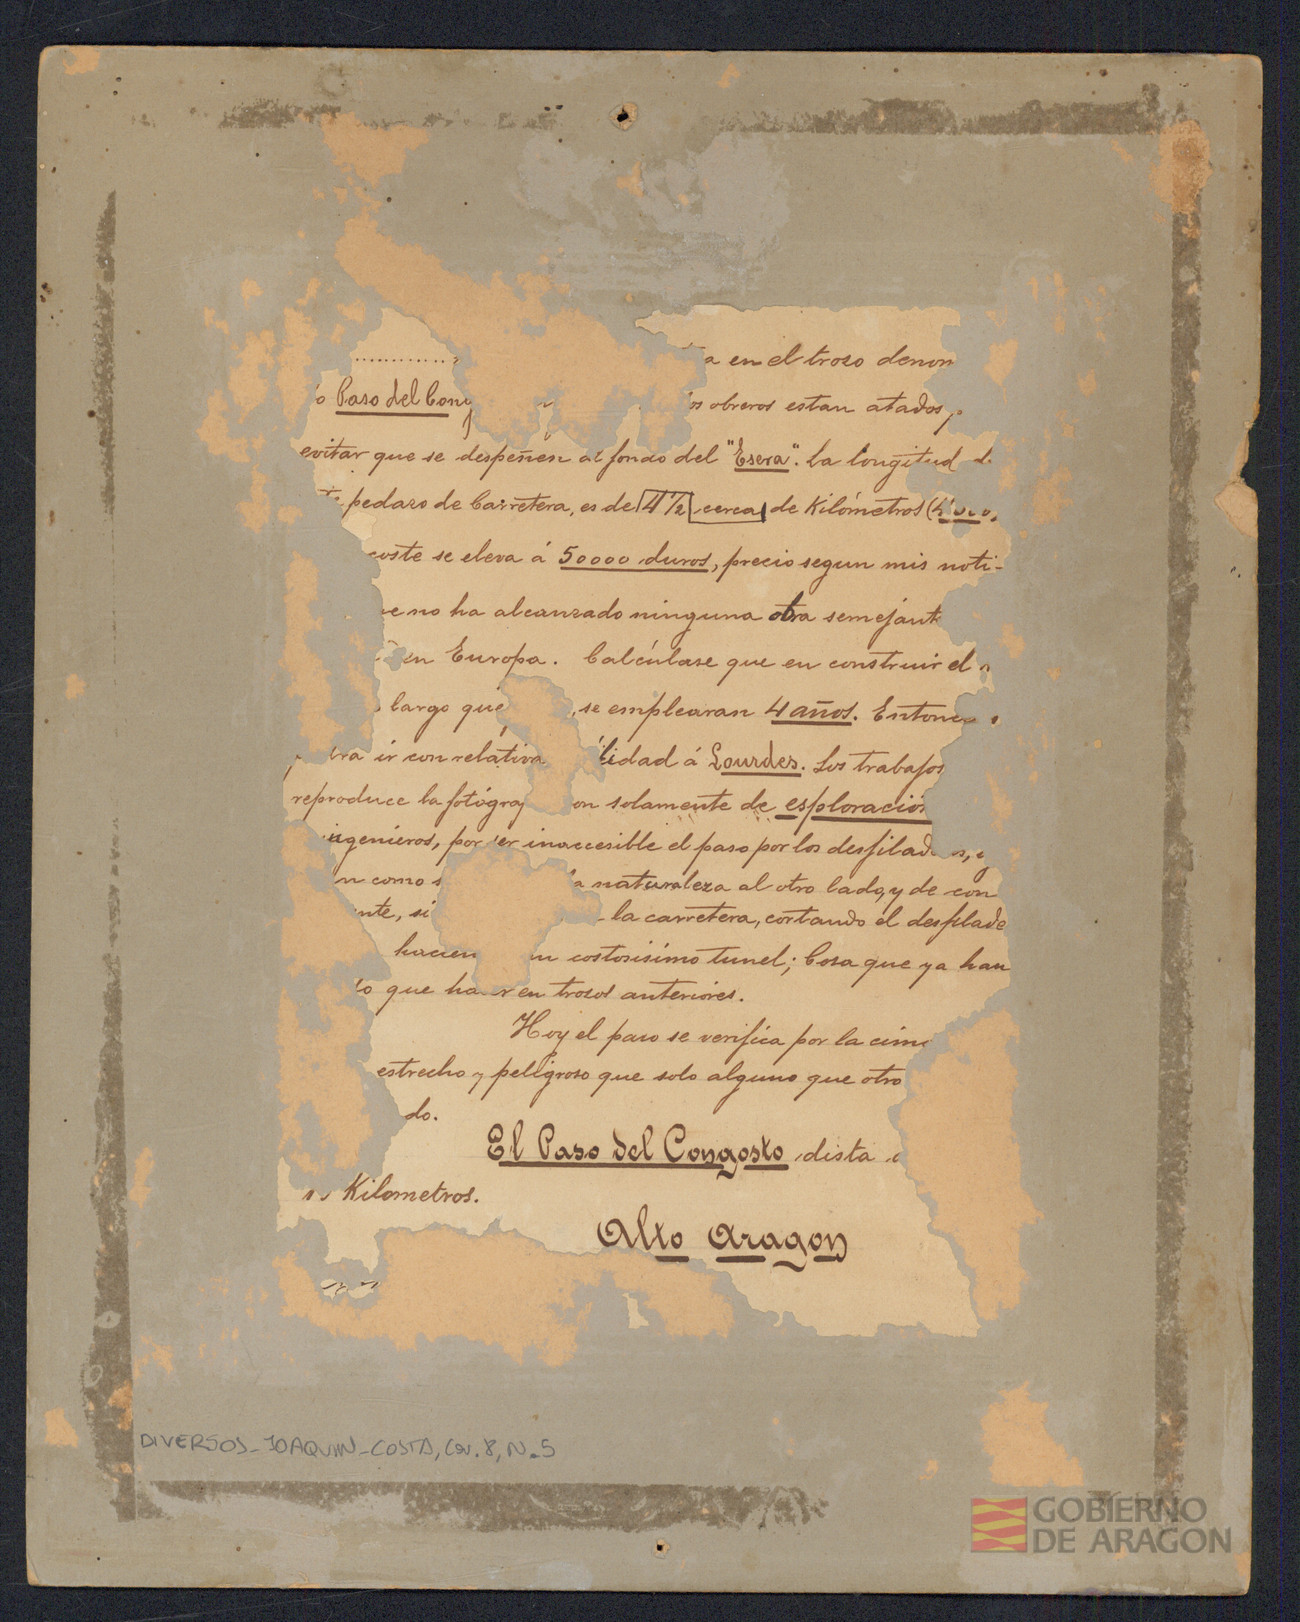 ............ a en el trozo denom
o Paso del Cong os obreros estan atados
evitar que se despeñen al fondo del "Esera". La longitud d
pedazo de Carretera, es de 4 1/2 cerca de Kilómetros
coste se eleva á 50000 duros, precio segun mis noti-
no ha alcanzado ninguna otra semejant
en Europa. Calcúlase que en construir el
largo que , se emplearan 4 años. Entonces
ir con relativa lidad á Lourdes. Los trabajos
reproduce la fotógraf on solamente de esploración
ingenieros, por ser inaccesible el paso por los desfilad
n como s la naturaleza al otro lado, y de con
nte, si la carretera, cortando el desfilade
hacien un costosisimo tunel; Cosa que ya han
do que hacer en trozos anteriores.
Hoy el paso se verifica por la cim
estrecho y peligroso que solo alguno que otro
do.
El Paso del Congosto dista
Kilometros.
Alto Aragon
DIVERSOS_JOAQUIN_COSTA, Cav. 8, N. 5
GOBIERNO
DE ARAGON